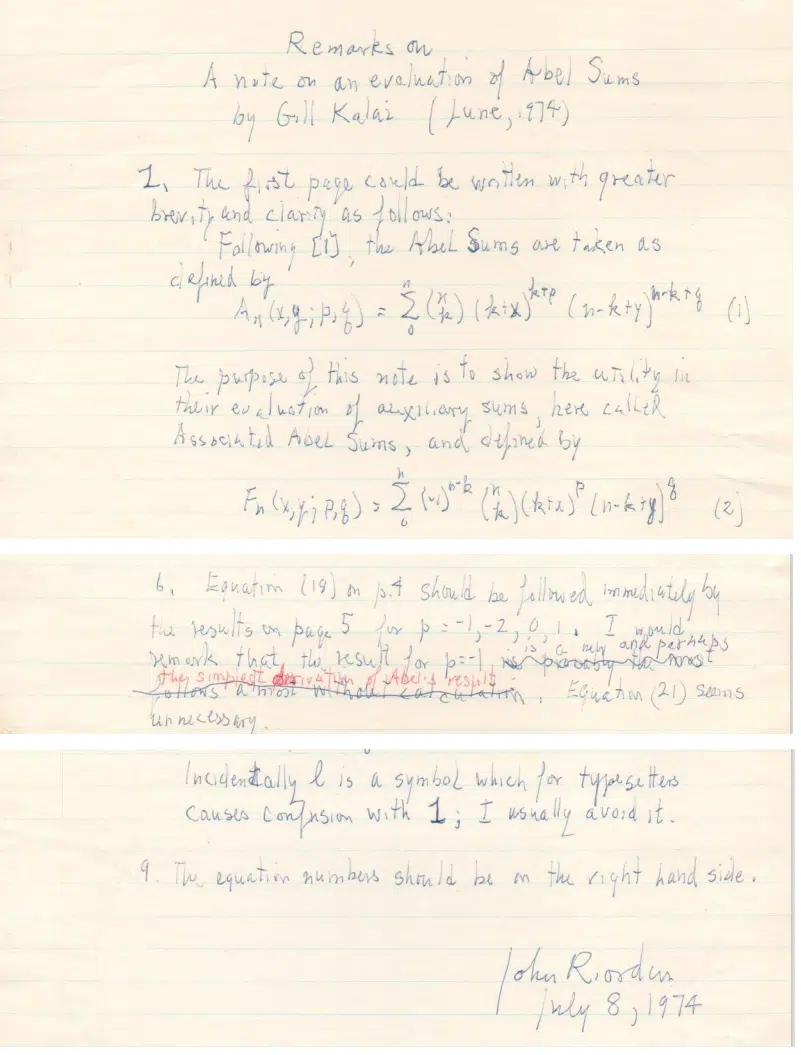 Remarks on
A note on an evaluation of Abel Sums
by Gill Kalai (June, 1974)
1. The first page could be written with greater
brevity and clarity as follows:
Following [1], the Abel Sums are taken as
defined by
A_n(x,y;p,q) = Σ_0^n (n k) (k+x)^{k+p} (n-k+y)^{n-k+q} (1)
The purpose of this note is to show the utility in
their evaluation of auxiliary sums, here called
Associated Abel Sums, and defined by
F_n(x,y;p,q) = Σ_0^n (-1)^{n-k} (n k) (k+x)^p (n-k+y)^q (2)
6. Equation (19) on p.4 should be followed immediately by
the results on page 5 for p = -1, -2, 0, 1. I would
is a new and perhaps
remark that, the result for p=-1 is possibly the most
the simplest derivation of Abel's result
follows almost without calculation. Equation (21) seems
unnecessary.
Incidentally l is a symbol which for typesetters
causes confusion with 1; I usually avoid it.
9. The equation numbers should be on the right hand side.
John Riordan
July 8, 1974